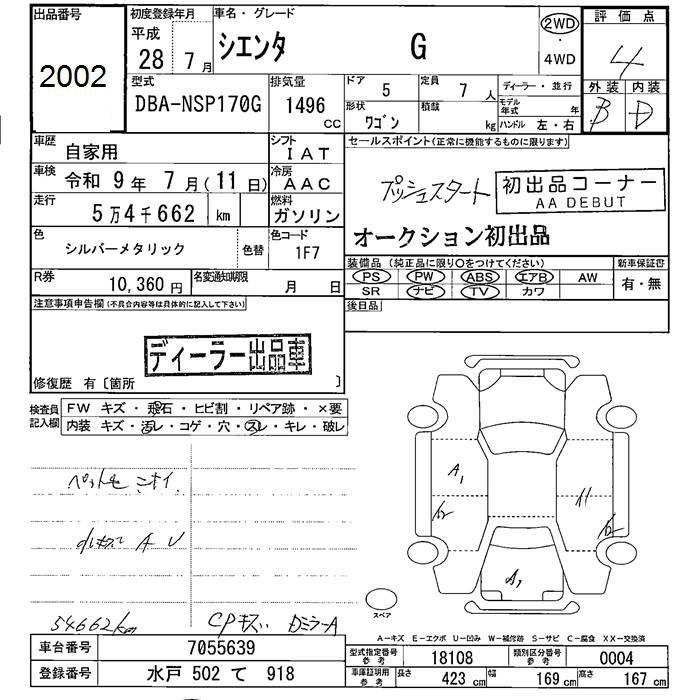 出品番号
2002
初度登録年月
平成
28 7月
車名・グレード
シエンタ G
2WD
・
4WD
評価点
4
外装 内装
B D
型式
DBA-NSP170G
排気量
1496
cc
ドア 5
定員 7 人
形状 ワゴン
積載 kg
ディーラー・並行
モデル年式 年
ハンドル 左・右
車歴
自家用
シフト
IAT
車検
令和 9年 7月(11日)
冷房
AAC
走行
5万4千662 km
燃料
ガソリン
色
シルバーメタリック
色替
色コード
1F7
R券
10,360 円
名変通知期限
月 日
セールスポイント(正常に機能するものに限ります)
プッシュスタート
初出品コーナー
AA DEBUT
オークション初出品
装備品(純正品に限り○をつけてください)
PS PW ABS エアB AW
SR ナビ TV カワ
新車保証書
有・無
後日品
注意事項申告欄(不具合内容等は具体的に記入して下さい)
ディーラー出品車
修復歴 有〔箇所 〕
検査員
記入欄
FW キズ・飛石・ヒビ割・リペア跡・×要
内装 キズ・汚レ・コゲ・穴・スレ・キレ・破レ
ペット毛 ニオイ
小キズ A U
54662km
CPキズ DミラーA
A1
A1
スペア
A-キズ E-エクボ U-凹み W-補修跡 S-サビ C-腐食 XX-交換済
車台番号 7055639
登録番号 水戸 502 て 918
型式指定番号
参考
18108
類別区分番号
参考
0004
車庫証明用
参考
長さ 423 cm
幅 169 cm
高さ 167 cm